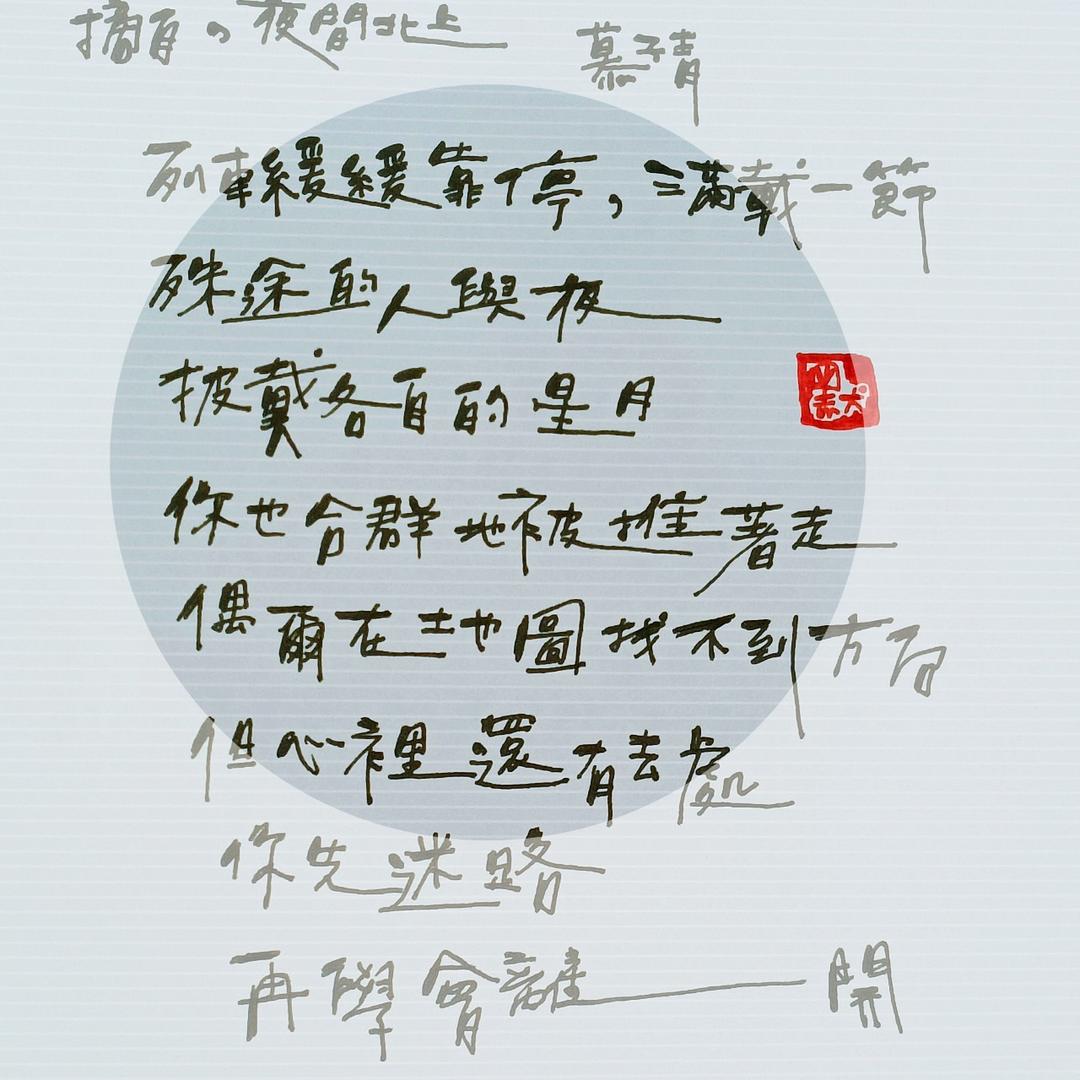 摘自。夜間北上 慕子青
列車緩緩靠停，滿載一節
殊途的人與夜
披戴各自的星月
你也合群地被推著走
偶爾在土地圖找不到方向
但心裡還有去處
你先迷路
再學會離開